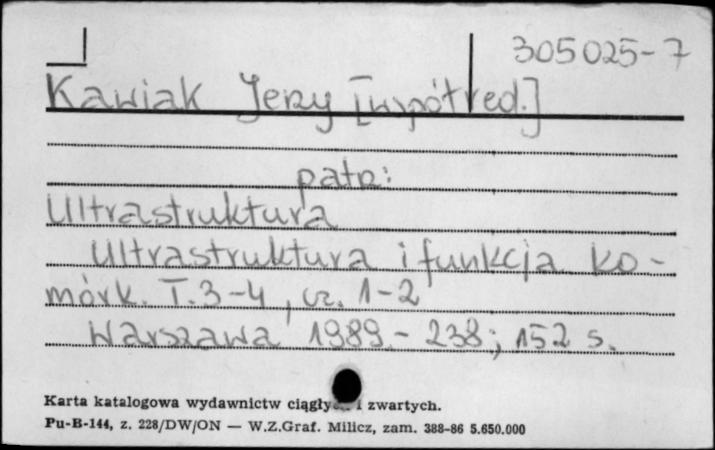 305025-7
Kawiak Jerzy [współred.]
patrz:
Ultrastruktura
Ultrastruktura i funkcja ko-
mórk. T.3-4, cz. 1-2
Warszawa 1989.- 238; 152 s.
Karta katalogowa wydawnictw i zwartych.
Pu-B-144, z. 228/DW/ON — W.Z.Graf. Milicz, zam. 388-86 5.650.000